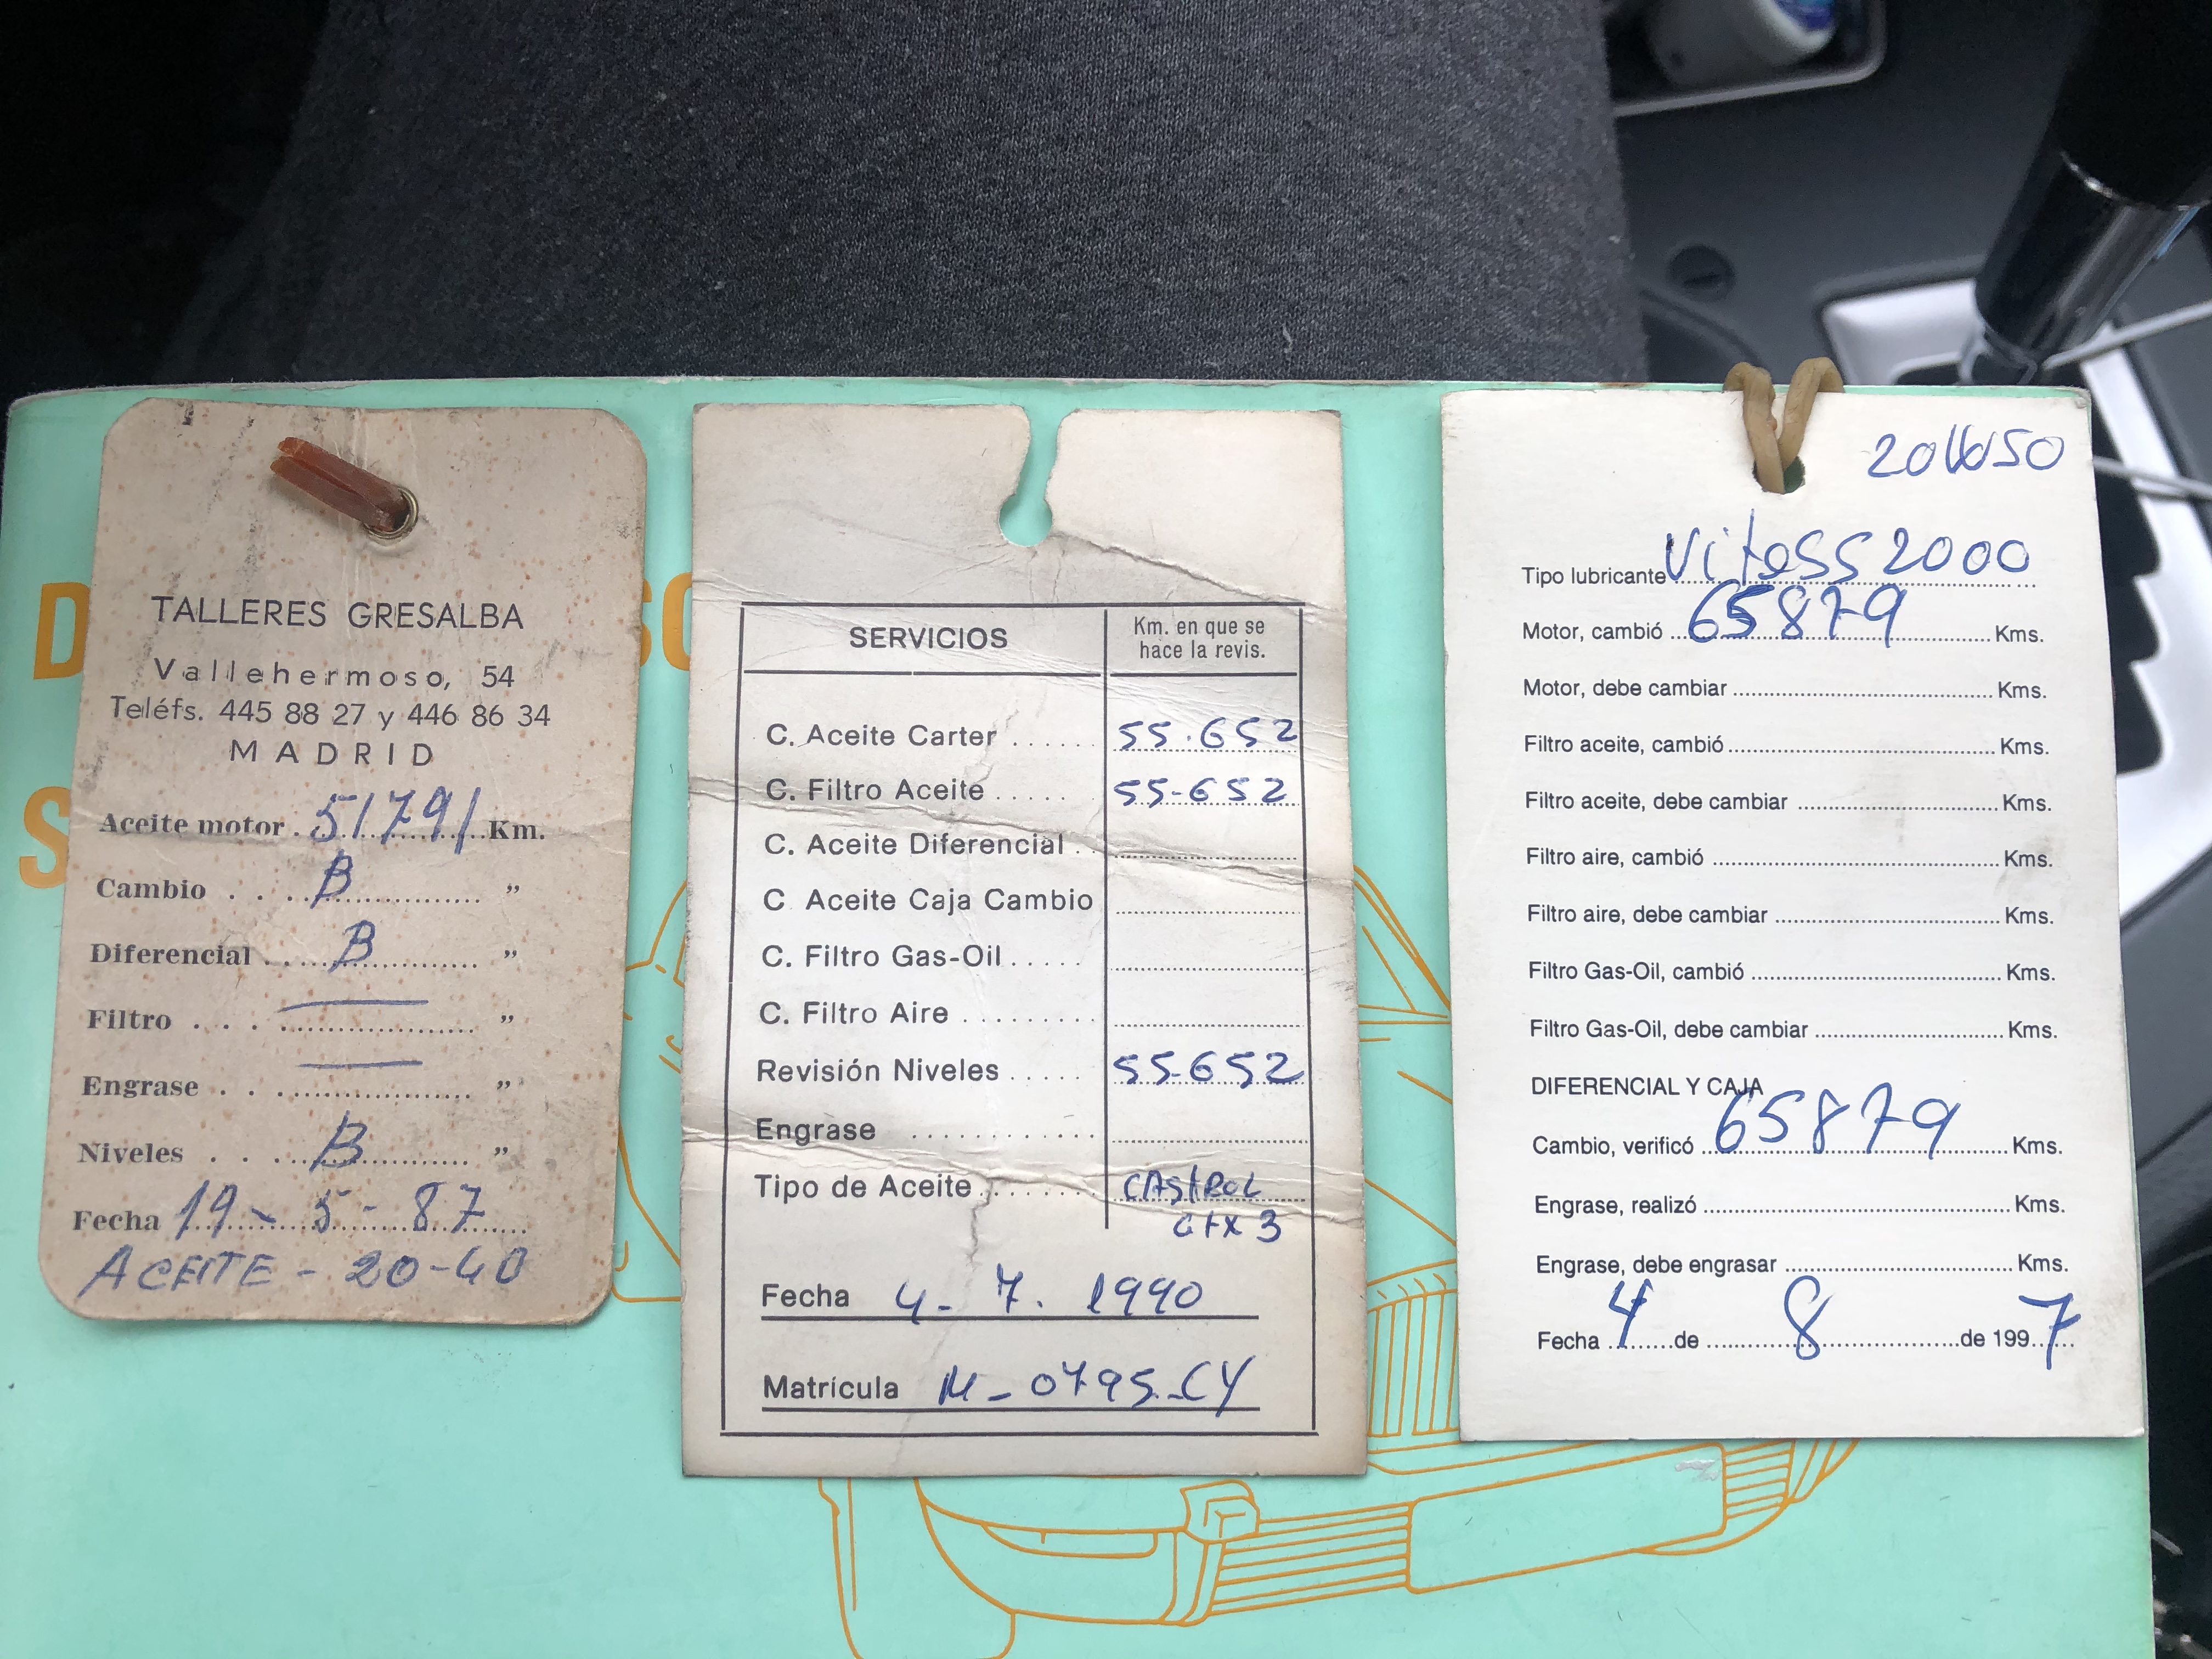 TALLERES GRESALBA
Vallehermoso, 54
Teléfs. 445 88 27 y 446 86 34
MADRID
Aceite motor . 51791 Km.
Cambio . . . B "
Diferencial . . B "
Filtro . . . . — "
Engrase . . . — "
Niveles . . . B "
Fecha 19 - 5 - 87
ACEITE - 20-40
SERVICIOS
Km. en que se
hace la revis.
C. Aceite Carter ..... 55.652
C. Filtro Aceite ..... 55-652
C. Aceite Diferencial .
C Aceite Caja Cambio
C. Filtro Gas-Oil .....
C. Filtro Aire .........
Revisión Niveles ..... 55-652
Engrase ..........
Tipo de Aceite ....... CASTROL
GTX 3
Fecha 4 - 7. 1990
Matrícula M-0795-CY
20W50
Tipo lubricante Vitess 2000
Motor, cambió 65879 Kms.
Motor, debe cambiar Kms.
Filtro aceite, cambió Kms.
Filtro aceite, debe cambiar Kms.
Filtro aire, cambió Kms.
Filtro aire, debe cambiar Kms.
Filtro Gas-Oil, cambió Kms.
Filtro Gas-Oil, debe cambiar Kms.
DIFERENCIAL Y CAJA
Cambio, verificó 65879 Kms.
Engrase, realizó Kms.
Engrase, debe engrasar Kms.
Fecha 4 de 8 de 1997